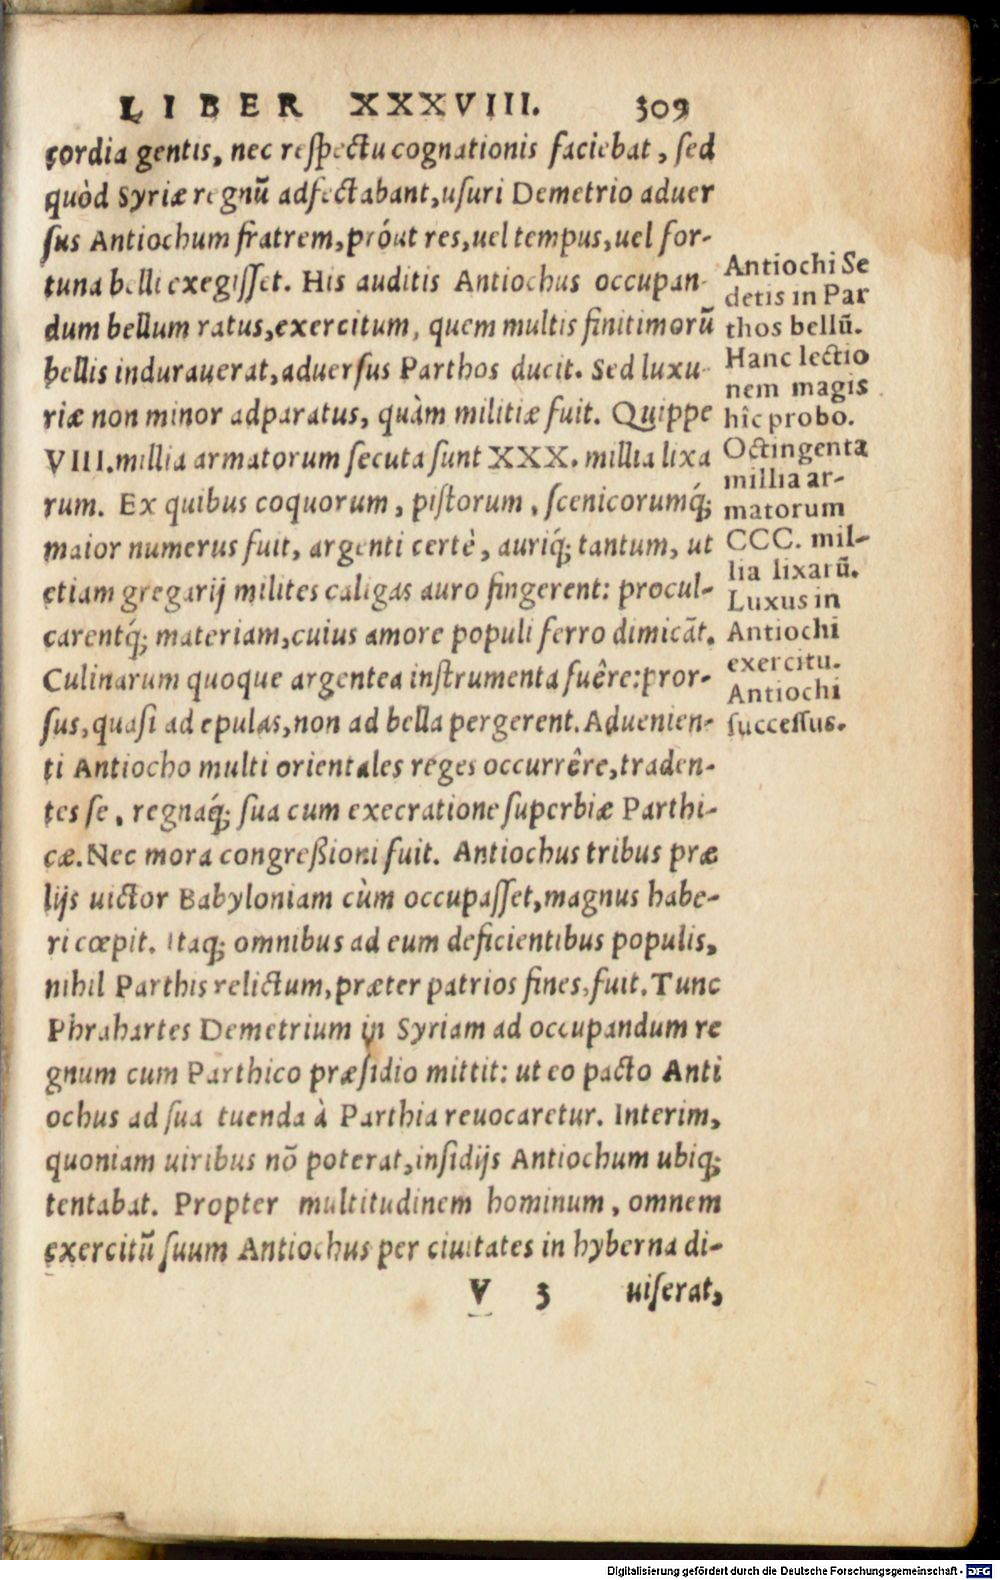 LIBER XXXVIII. 309
cordia gentis, nec respectu cognationis faciebat, sed
quòd Syriæ regnũ adfectabant, usuri Demetrio aduer
sus Antiochum fratrem, próut res, uel tempus, uel for-
tuna belli exegisset. His auditis Antiochus occupan-
dum bellum ratus, exercitum, quem multis finitimorũ
bellis indurauerat, aduersus Parthos ducit. Sed luxu-
riæ non minor adparatus, quàm militiæ fuit. Quippe
VIII. millia armatorum secuta sunt XXX. millia lixa
rum. Ex quibus coquorum, pistorum, scenicorumq́;
maior numerus fuit, argenti certè, auriq́; tantum, ut
etiam gregarij milites caligas auro fingerent: procul-
carentq́; materiam, cuius amore populi ferro dimicãt.
Culinarum quoque argentea instrumenta fuêre: pror-
sus, quasi ad epulas, non ad bella pergerent. Aduenien-
ti Antiocho multi orientales reges occurrêre, traden-
tes se, regnaq́; sua cum execratione superbiæ Parthi-
cæ. Nec mora congreßioni fuit. Antiochus tribus præ
lijs uictor Babyloniam cùm occupasset, magnus habe-
ri cœpit. Itaq; omnibus ad eum deficientibus populis,
nihil Parthis relictum, præter patrios fines, fuit. Tunc
Phrahartes Demetrium in Syriam ad occupandum re
gnum cum Parthico præsidio mittit: ut eo pacto Anti
ochus ad sua tuenda à Parthia reuocaretur. Interim,
quoniam uiribus nõ poterat, insidijs Antiochum ubiq;
tentabat. Propter multitudinem hominum, omnem
exercitũ suum Antiochus per ciuitates in hyberna di-
V 3 uiserat,
Antiochi Se
detis in Par
thos bellũ.
Hanc lectio
nem magis
hîc probo.
Octingenta
millia ar-
matorum
CCC. mil-
lia lixarũ.
Luxus in
Antiochi
exercitu.
Antiochi
successus.
Digitalisierung gefördert durch die Deutsche Forschungsgemeinschaft - DFG